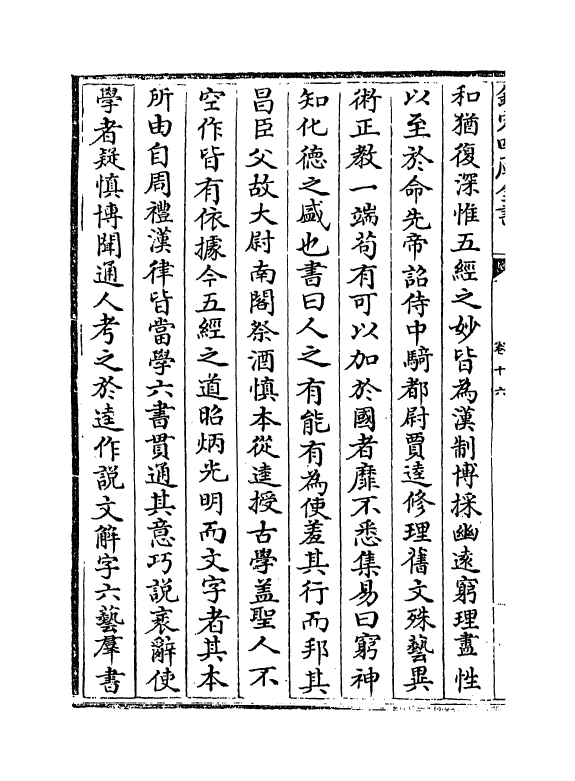 卷十六
和猶復深惟五經之妙皆為漢制博採幽逺窮理盡性
以至於命先帝詔侍中騎都尉賈逵修理舊文殊藝異
術正教一端茍有可以加於國者靡不悉集易曰窮神
知化德之盛也書曰人之有能有為使羞其行而邦其
昌臣父故大尉南閣祭酒慎本從逵授古學葢聖人不
空作皆有依據今五經之道昭炳光明而文字者其本
所由自周禮漢律皆當學六書貫通其意巧說衺辭使
學者疑慎博聞通人考之於逵作說文解字六藝羣書